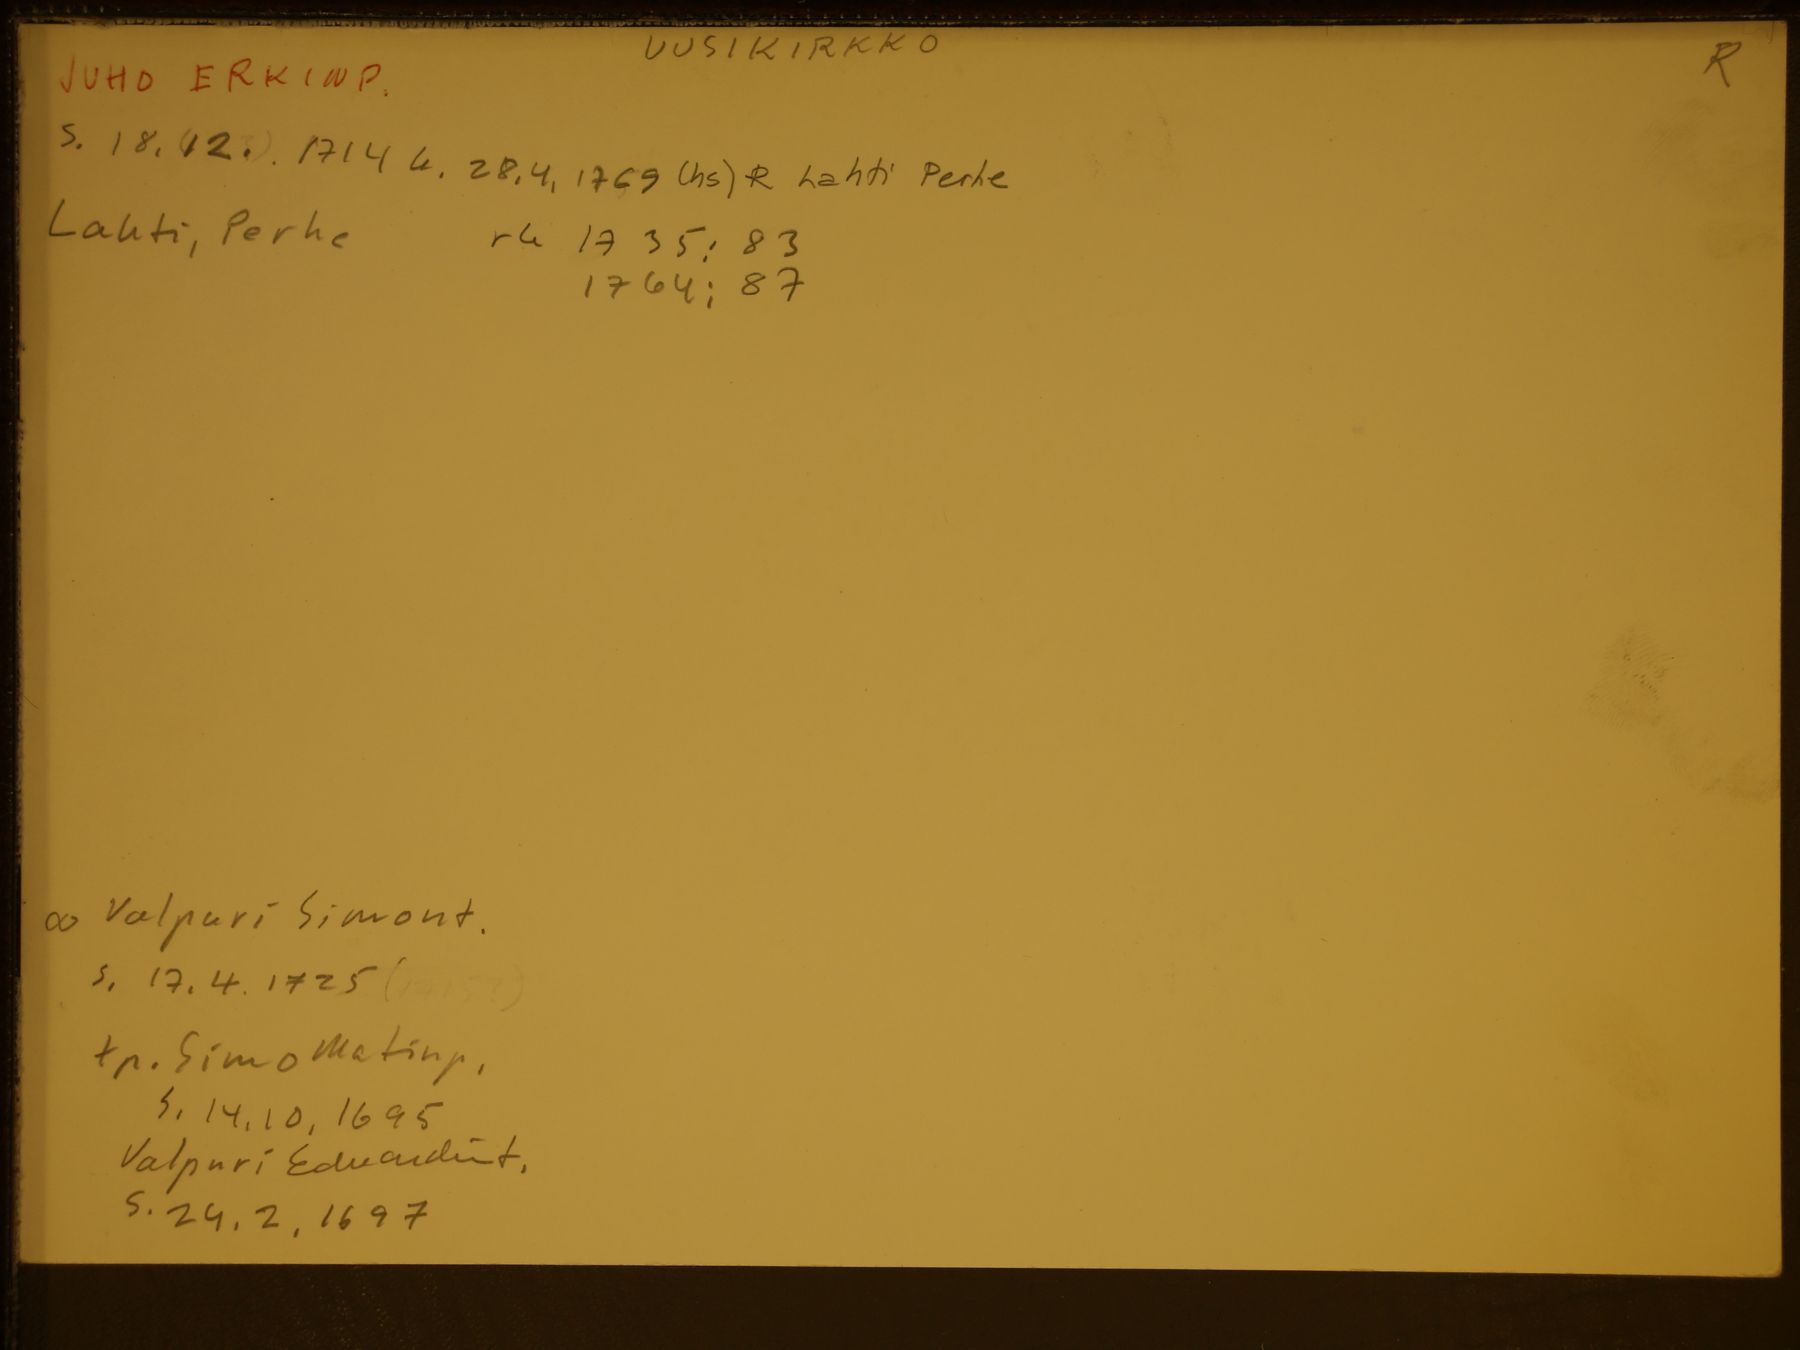 UUSIKIRKKO
R
JUHO ERKINP.
s. 18.(12.). 1714 k. 28.4.1769 (hs) R Lahti Perhe
Lahti, Perhe rk 1735; 83
1764; 87
∞ Valpuri Simont.
s. 17.4.1725 (1715?)
tp. Simo Matinp.
s. 14.10.1695
Valpuri Eduardint.
s. 24.2.1697